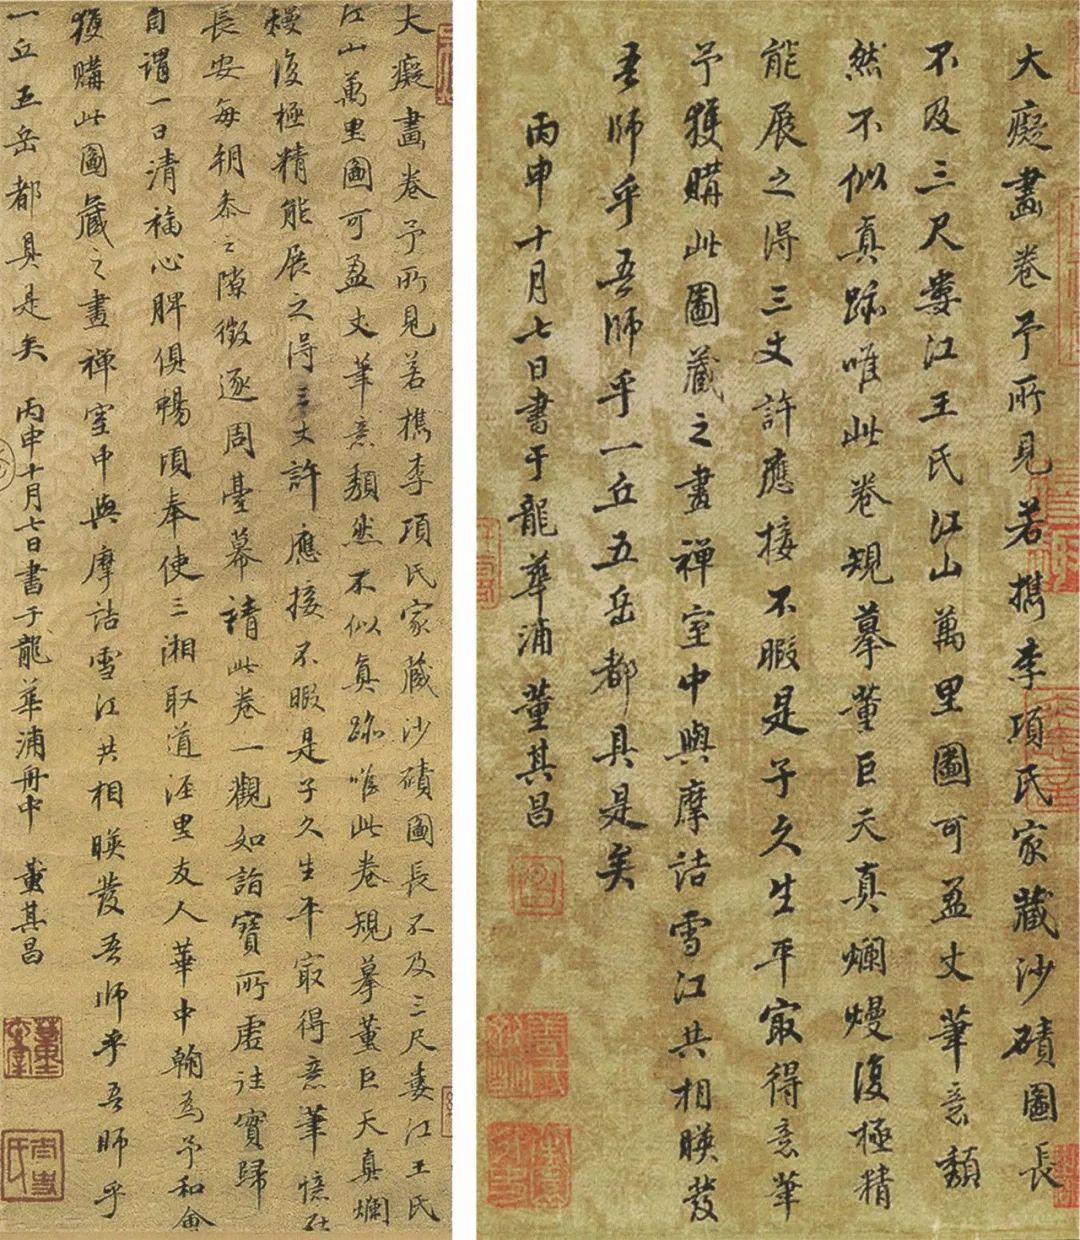 大癡畫卷予所見若檇李項氏家藏沙磧圖長不及三尺婁江王氏
江山萬里圖可盈丈筆意頹然不似真跡唯此卷規摹董巨天真爛
熳復極精能展之得三丈許應接不暇是子久生平冣得意筆憶在
長安每朝參之隙徵逐周臺幕請此卷一觀如詣寶所虛往實歸
自謂一日清福心脾俱暢頃奉使三湘取道涇里友人華中翰為予和會
獲購此圖藏之畫禪室中與摩詰雪江共相暎發吾師乎吾師乎
一丘五岳都具是矣 丙申十月七日書于龍華浦舟中 董其昌
大癡畫卷予所見若檇李項氏家藏沙磧圖長
不及三尺婁江王氏江山萬里圖可盈丈筆意頹
然不似真跡唯此卷規摹董巨天真爛熳復極精
能展之得三丈許應接不暇是子久生平冣得意筆
予獲購此圖藏之畫禪室中與摩詰雪江共相暎發
吾師乎吾師乎一丘五岳都具是矣
丙申十月七日書于龍華浦董其昌